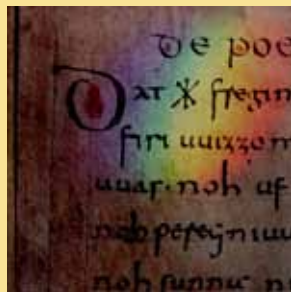 De poe
Dat * fregin
firi uuizzo m
uuas · noh uf
noh pereg niuu
noh sunnu n